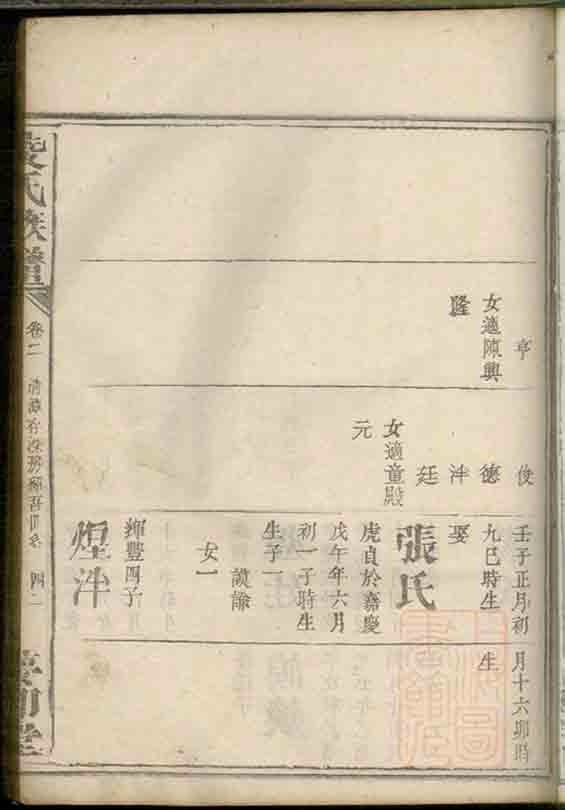 亨
女適陳興
隆
俊
德
泮
廷
女適童殿
元
壬子正月初
九巳時生
娶
張氏
虎貞於嘉慶
戊午年六月
初一子時生
生子一
謨諭
女一
輝豐四子
煌泮
月十六卯時
生
氏族譜
卷二
四二
堂